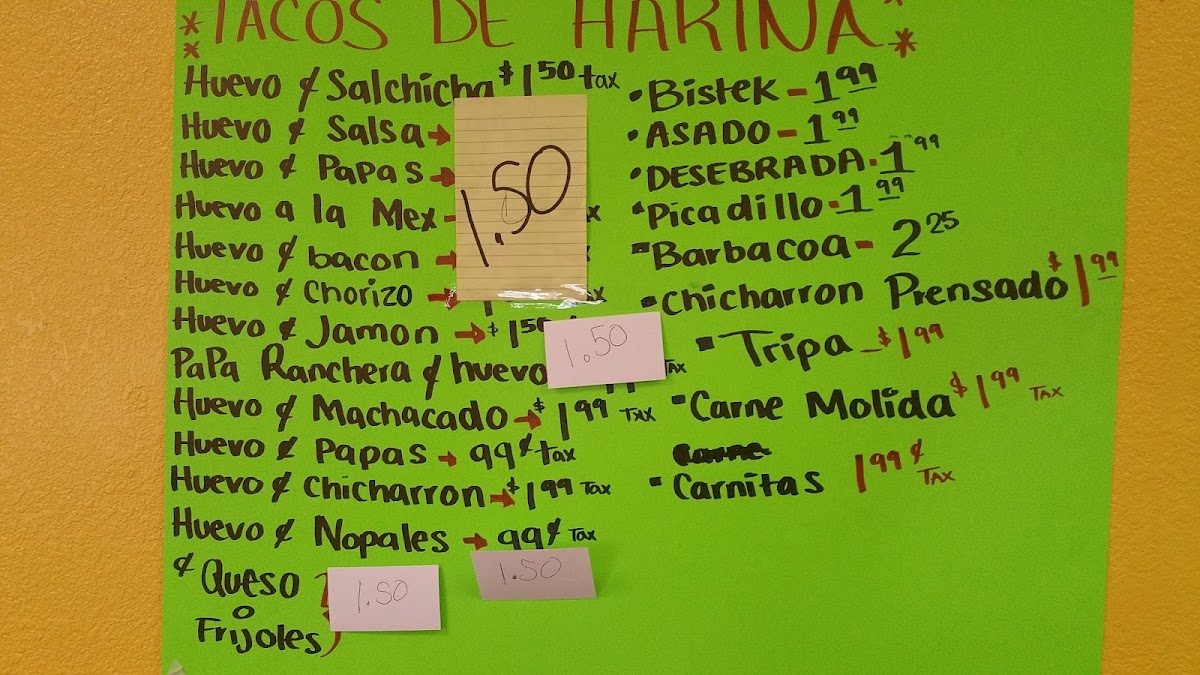 TACOS DE HARINA
Huevo ¢ Salchicha $1.50 tax
Huevo ¢ Salsa
Huevo ¢ Papas
Huevo a la Mex
Huevo ¢ bacon
Huevo ¢ Chorizo
1.50
Huevo ¢ Jamon $1.50
PaPa Ranchera ¢ huevo TAX
1.50
Huevo ¢ Machacado $1.99 TAX
Huevo ¢ Papas 99¢ tax
Huevo ¢ chicharron $1.99 Tax
Huevo ¢ Nopales 99¢ Tax
1.50
¢ Queso
o
Frijoles
1.50
• Bistek - 1.99
• ASADO - 1.99
• DESEBRADA. 1.99
• Picadillo - 1.99
• Barbacoa - 2.25
• chicharron Prensado $1.99
• Tripa - $1.99
• Carne Molida $1.99 TAX
• Carnitas 1.99¢ TAX